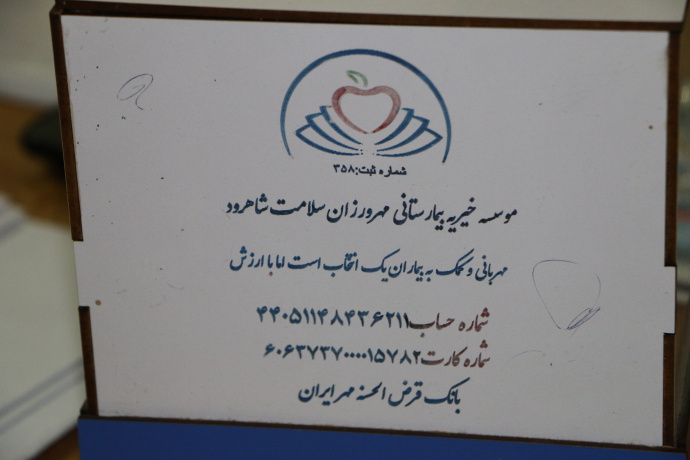 شماره ثبت:۳۵۸
موسسه خیریه بیمارستانی مهرورزان سلامت شاهرود
مهربانی و کمک به بیماران یک انتخاب است اما با ارزش
شماره حساب ۴۴۰۵۱۱۴۸۴۳۶۲۱۱
شماره کارت ۶۰۶۳۷۳۷۰۰۰۰۱۵۷۸۲
بانک قرض الحسنه مهر ایران